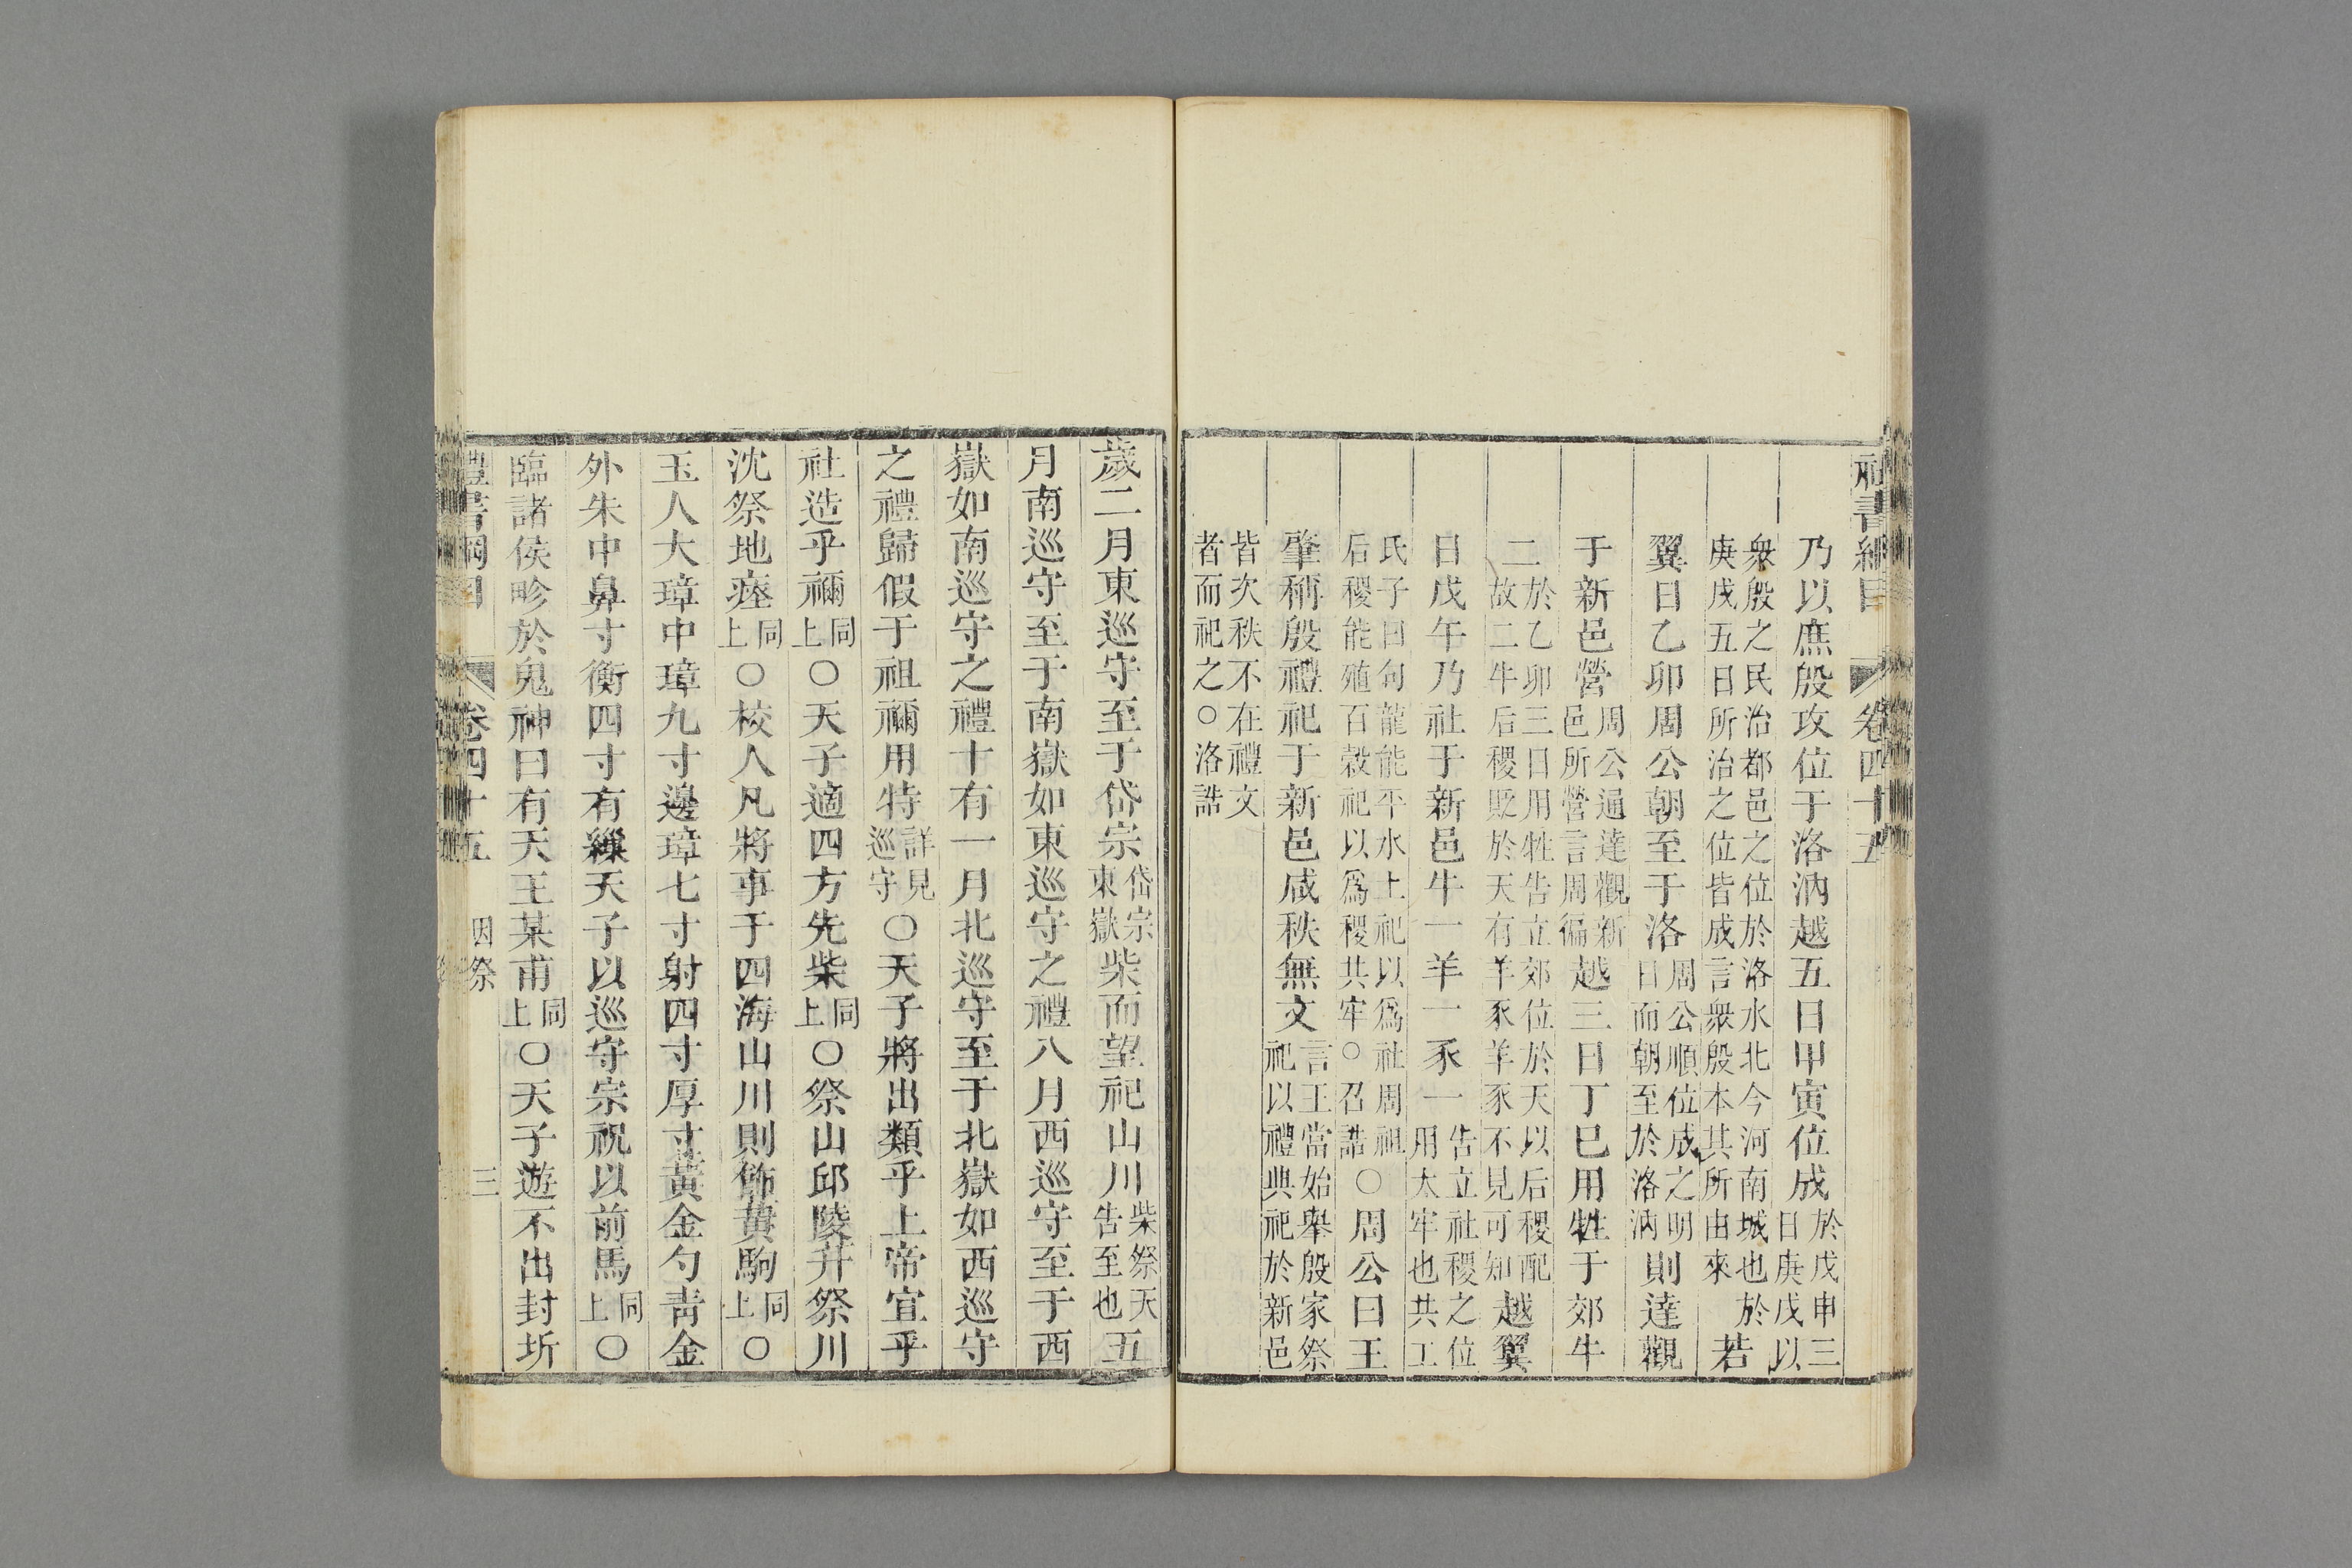 禮書綱目 卷四十五
乃以庶殷攻位于洛汭越五日甲寅位成於戊申三日庚戌以
衆殷之民治都邑之位於洛水北今河南城也於庚戌五日所治之位皆成言衆殷本其所由來若
翼日乙卯周公朝至于洛周公順位成之明日而朝至於洛汭則達觀
于新邑營周公通達觀新邑所營言周徧越三日丁巳用牲于郊牛
二於乙卯三日用牲告立郊位於天以后稷配故二牛后稷貶於天有羊豕羊豕不見可知越翼
日戊午乃社于新邑牛一羊一豕一告立社稷之位用太牢也共工
氏子曰句龍能平水土祀以爲社周祖后稷能殖百穀祀以爲稷共牢○召誥○周公曰王
肇稱殷禮祀于新邑咸秩無文言王當始舉殷家祭祀以禮典祀於新邑
皆次秩不在禮文者而祀之○洛誥
歲二月東巡守至于岱宗岱宗東嶽柴而望祀山川柴祭天告至也五
月南巡守至于南嶽如東巡守之禮八月西巡守至于西
嶽如南巡守之禮十有一月北巡守至于北嶽如西巡守
之禮歸假于祖禰用特詳見巡守○天子將出類乎上帝宜乎
社造乎禰同上○天子適四方先柴同上○祭山邱陵升祭川
沈祭地瘞同上○校人凡將事于四海山川則飾黃駒同上○
玉人大璋中璋九寸邊璋七寸射四寸厚寸黃金勺靑金
外朱中鼻寸衡四寸有繅天子以巡守宗祝以前馬同上○
臨諸侯畛於鬼神曰有天王某甫同上○天子遊不出封圻
禮書綱目 卷四十五 因祭 三